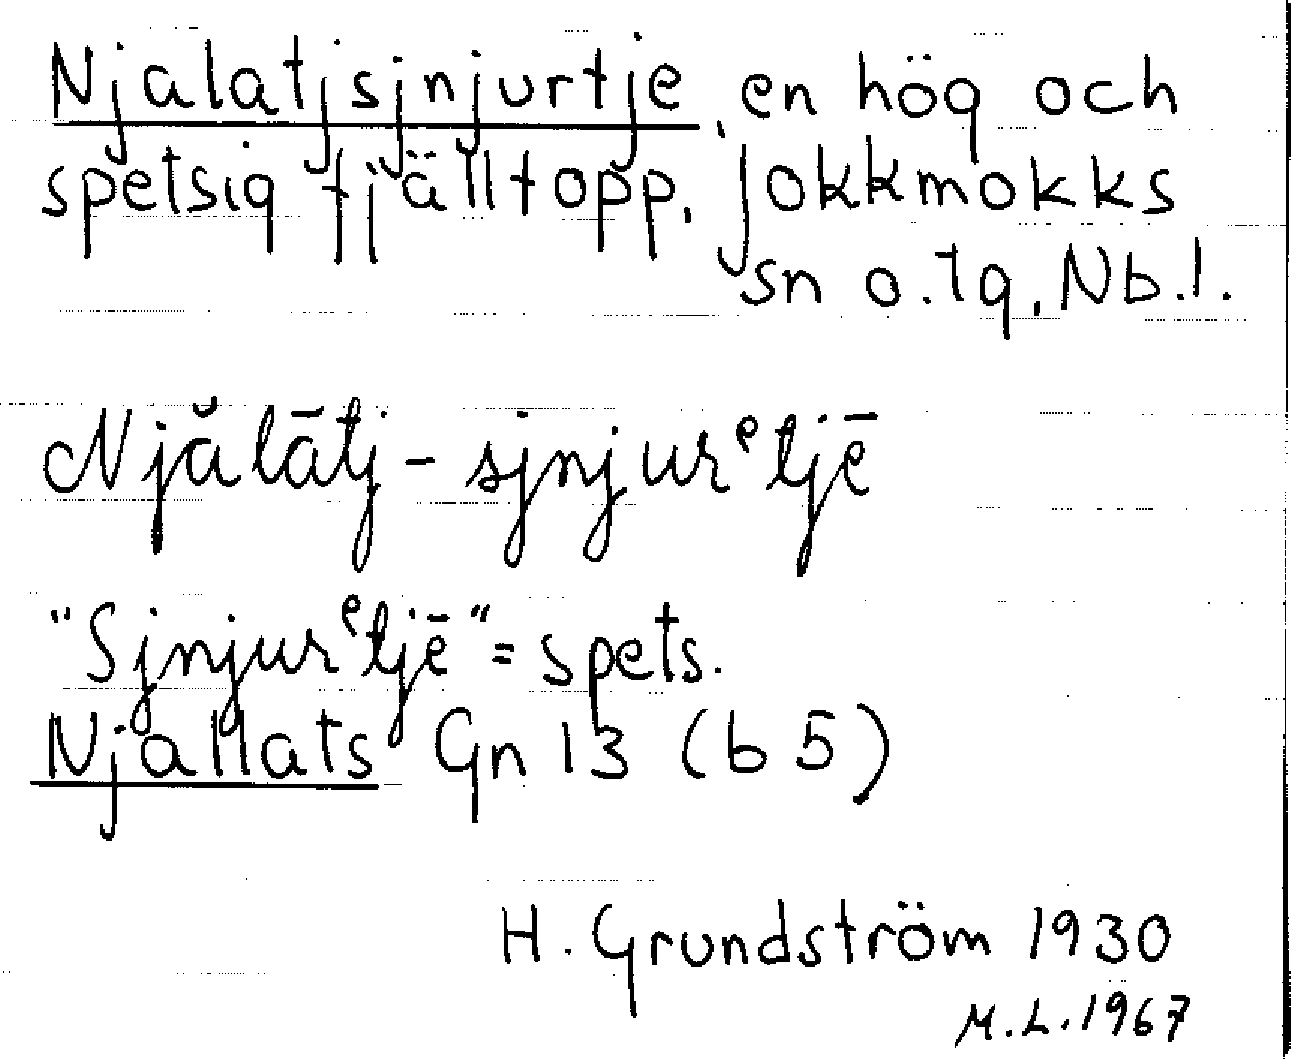 Njalatjsjnjurtje, en hög och
spetsig fjälltopp, Jokkmokks
sn o. tg, Nb.l.
Njălātj - sjnjurᵉtjē
"Sjnjurᵉtjē" = spets.
Njallats Gn 13 (b 5)
H. Grundström 1930
M.L. 1967